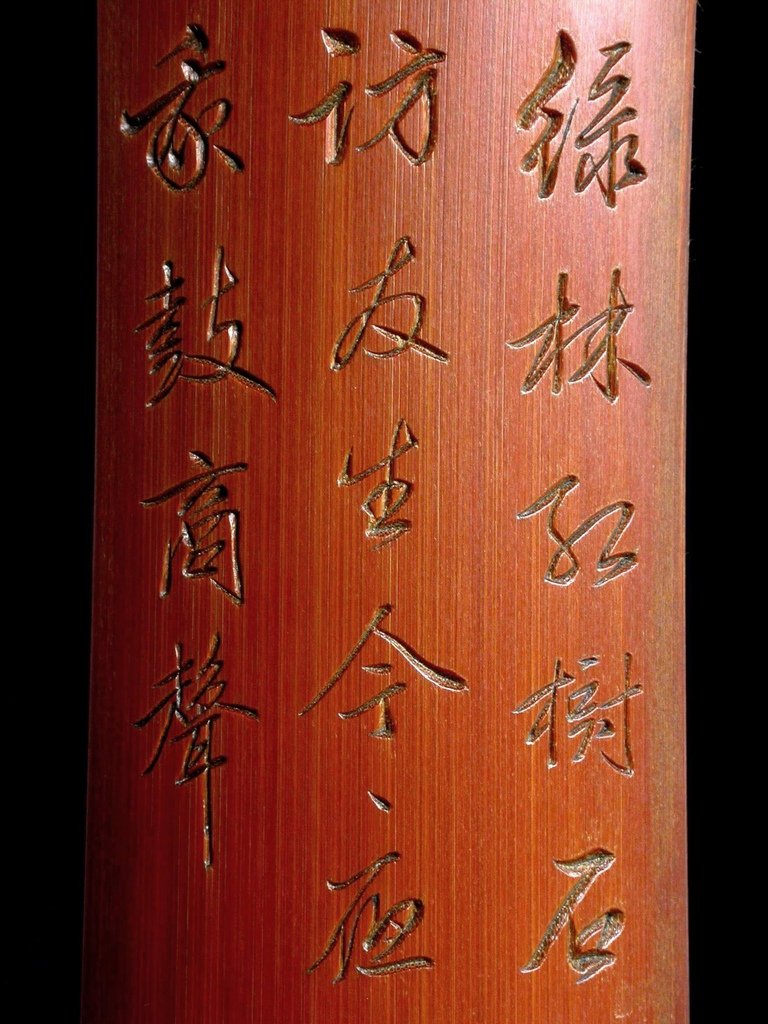 綠林紅樹石
訪友生今
鼓商聲